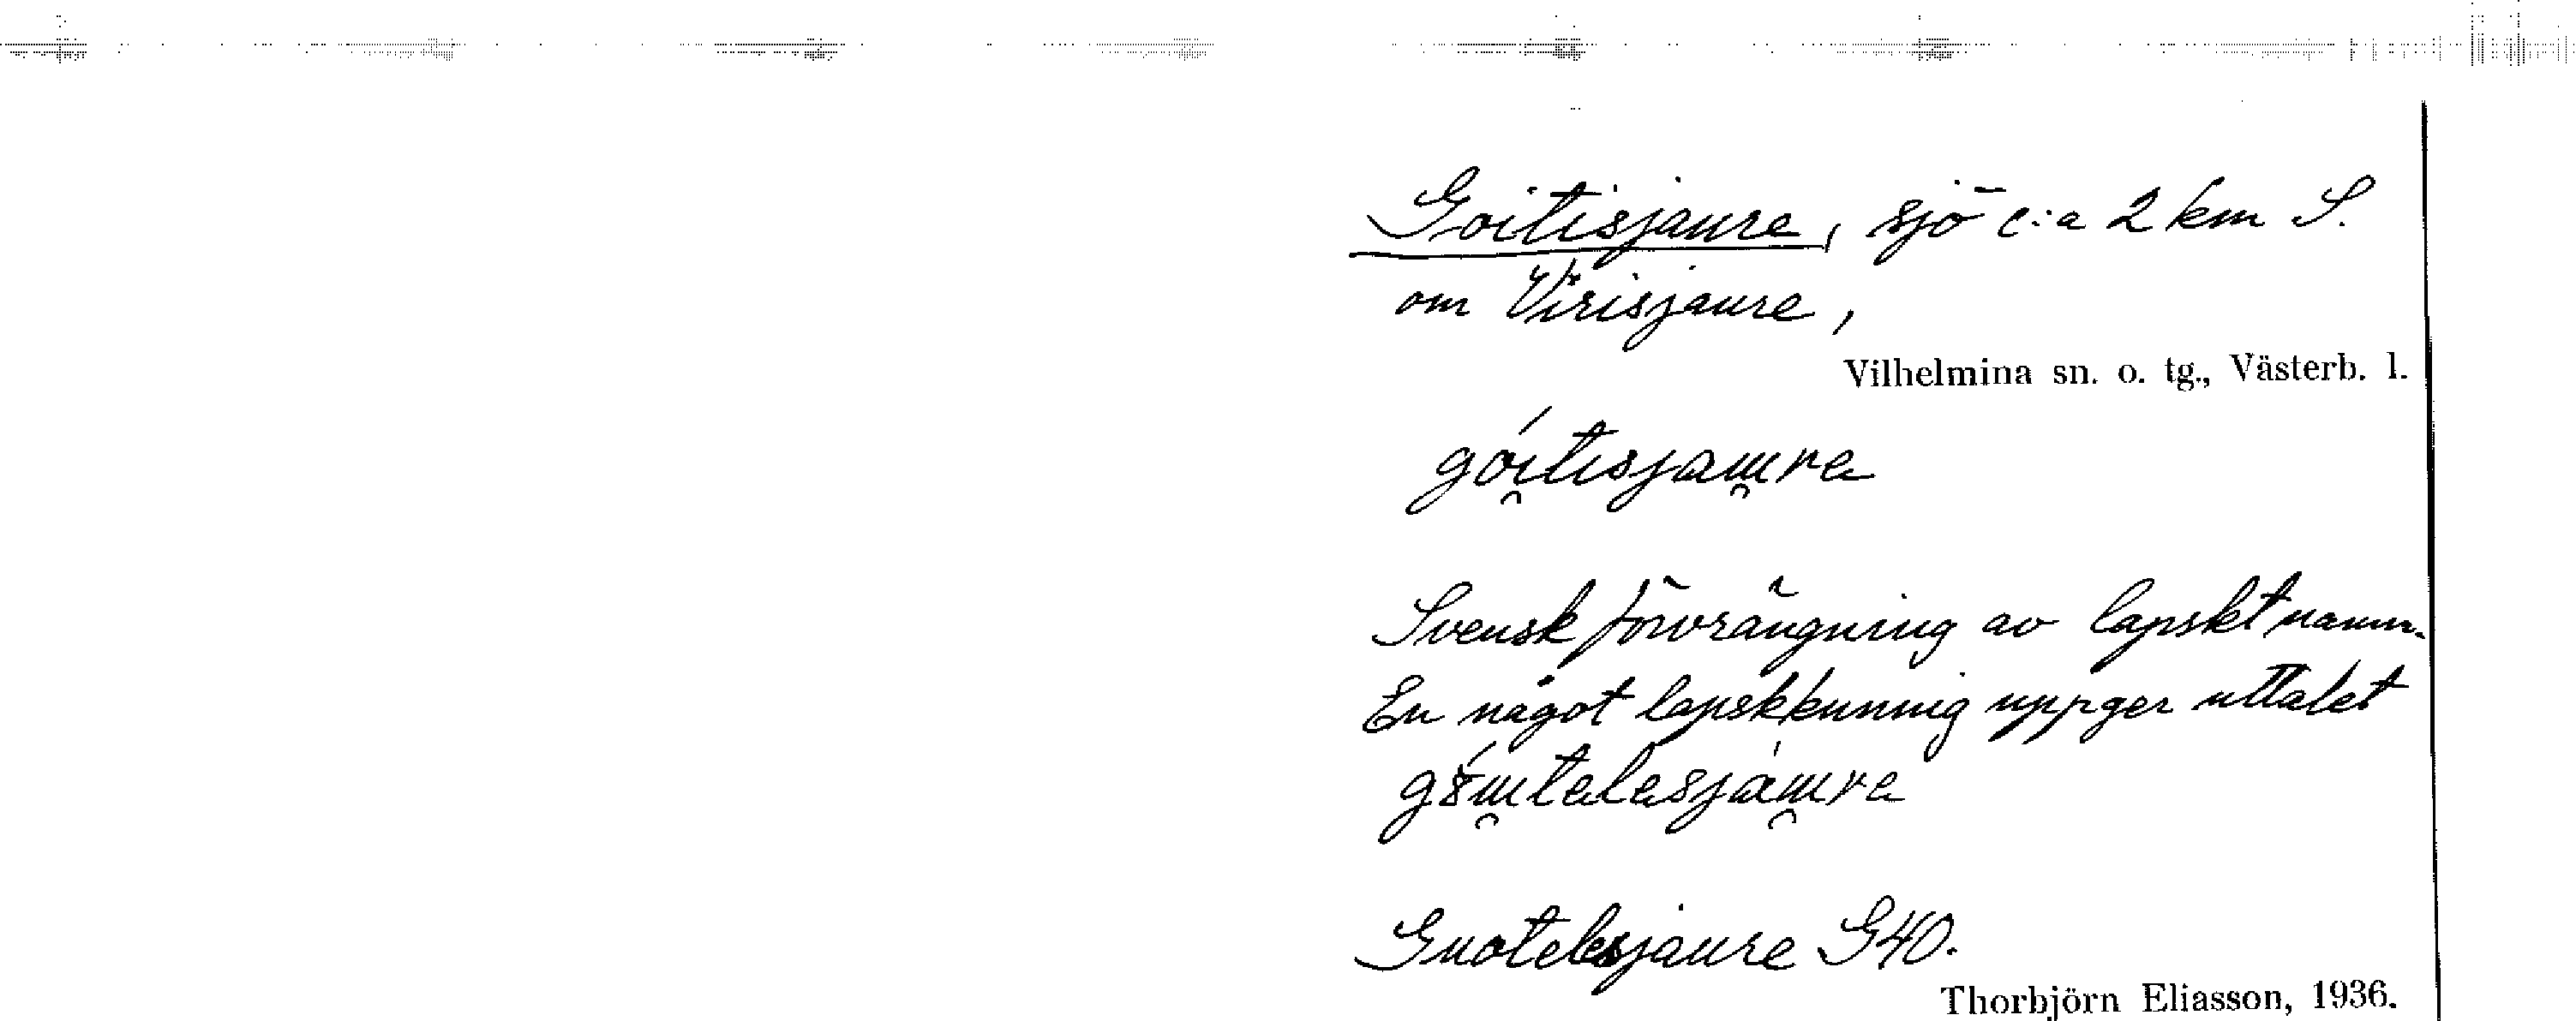 Goitisjaure, sjö c:a 2 km S.
om Virisjaure,
Vilhelmina sn. o. tg., Västerb. l.
Svensk förvrängning av lapskt namn.
En något lapskkunnig uppger uttalet
Guotelesjaure G40.
Thorbjörn Eliasson, 1936.